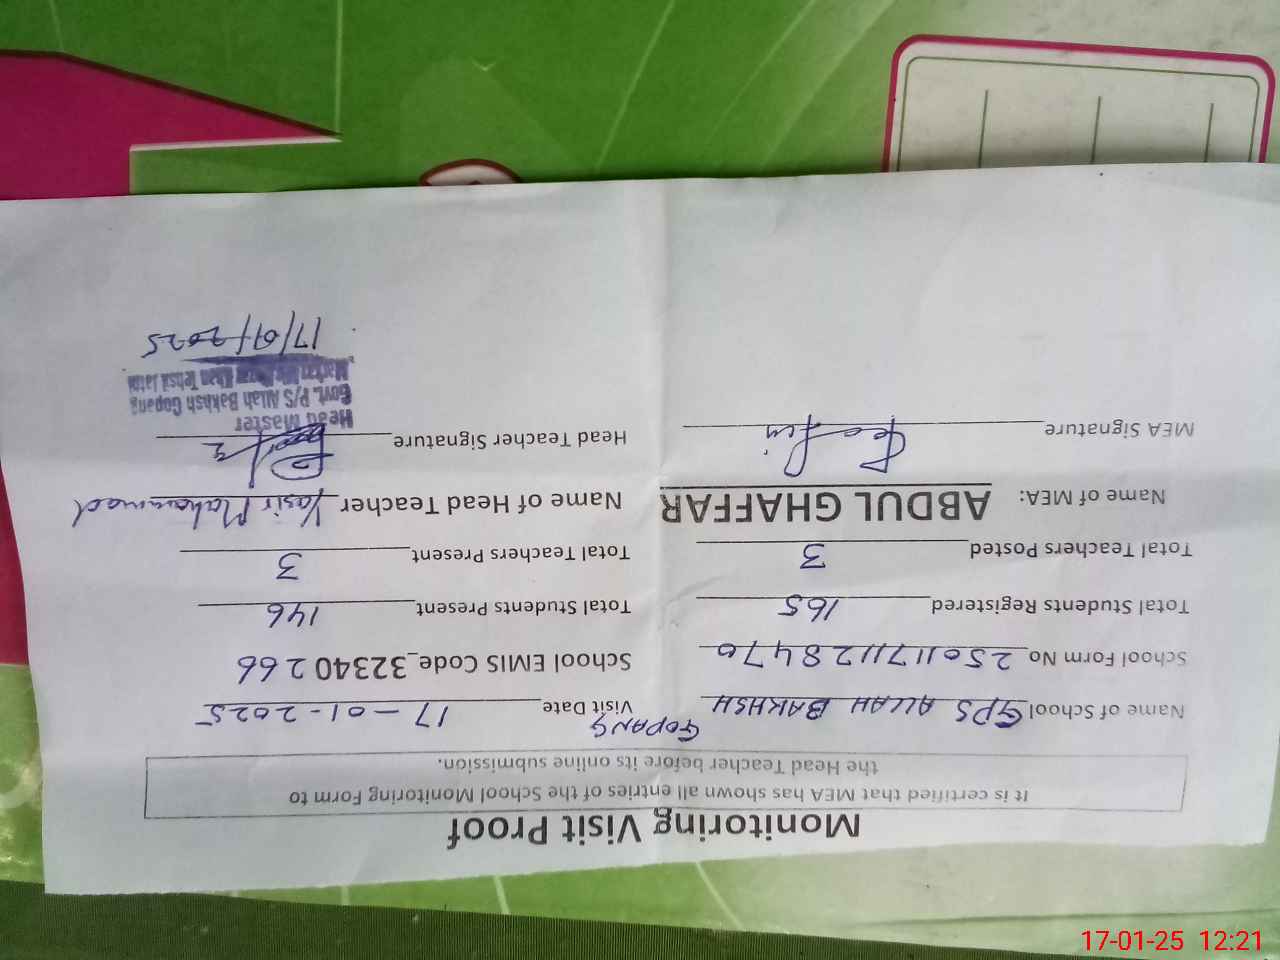 Monitoring Visit Proof
It is certified that MEA has shown all entries of the School Monitoring Form to
the Head Teacher before its online submission.
Name of School GPS ALLAH BAKHSH GOPANG Visit Date 17-01-2025
School Form No 250117111128470 School EMIS Code_32340266
Total Students Registered 165 Total Students Present 146
Total Teachers Posted 3 Total Teachers Present 3
Name of MEA: ABDUL GHAFFAR Name of Head Teacher Yasir Mahammad
MEA Signature Head Teacher Signature
Head Master
Govt. P/S Allah Bakhsh Gopang
Markaz Khan Tehsil Jatoi
17/01/2025
17-01-25 12:21